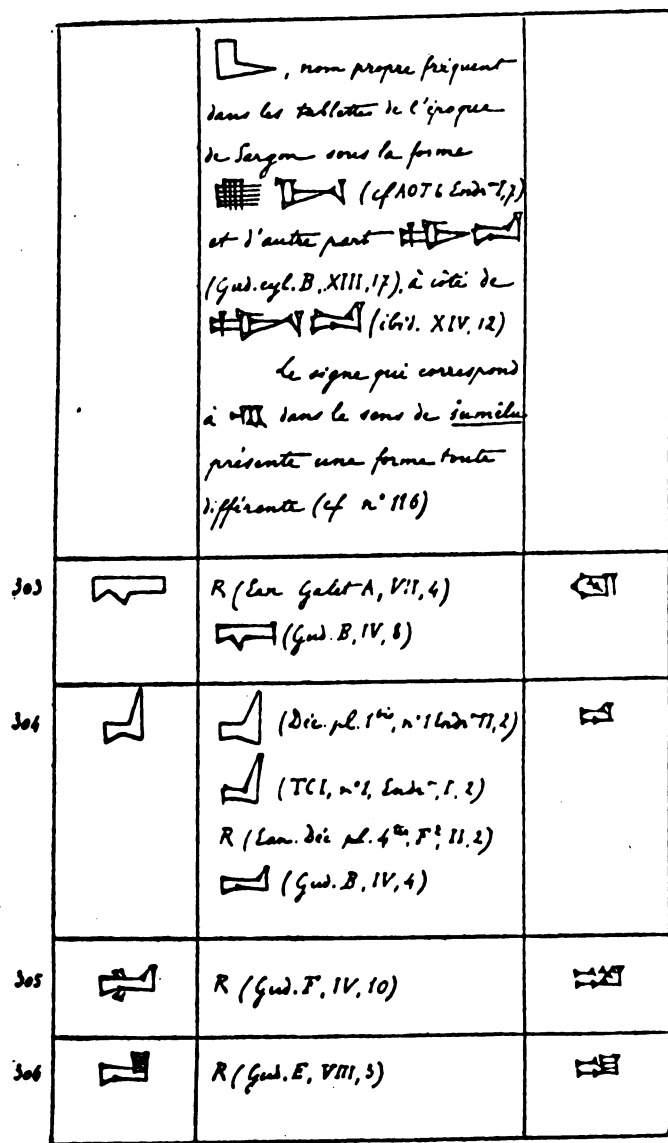 , nom propre fréquent
dans les tablettes de l'époque
de Sargon sous la forme
(cf AOT b Endr- I, 7)
et d'autre part
(Gud. cyl. B, XIII, 17), à côté de
(ibid. XIV, 12)
Le signe qui correspond
à dans le sens de šumêlu
présente une forme toute
différente (cf n° 116)
303 R (Ean Galet A, VII, 4)
(Gud. B, IV, 8)
304 (Déc. pl. 1bis, n° 1 Endr- II, 2)
(TCI, n° 1, Endr-, I, 2)
R (Ean. Déc pl. 4ter, F2, II, 2)
(Gud. B, IV, 4)
305 R (Gud. F, IV, 10)
306 R (Gud. E, VIII, 3)